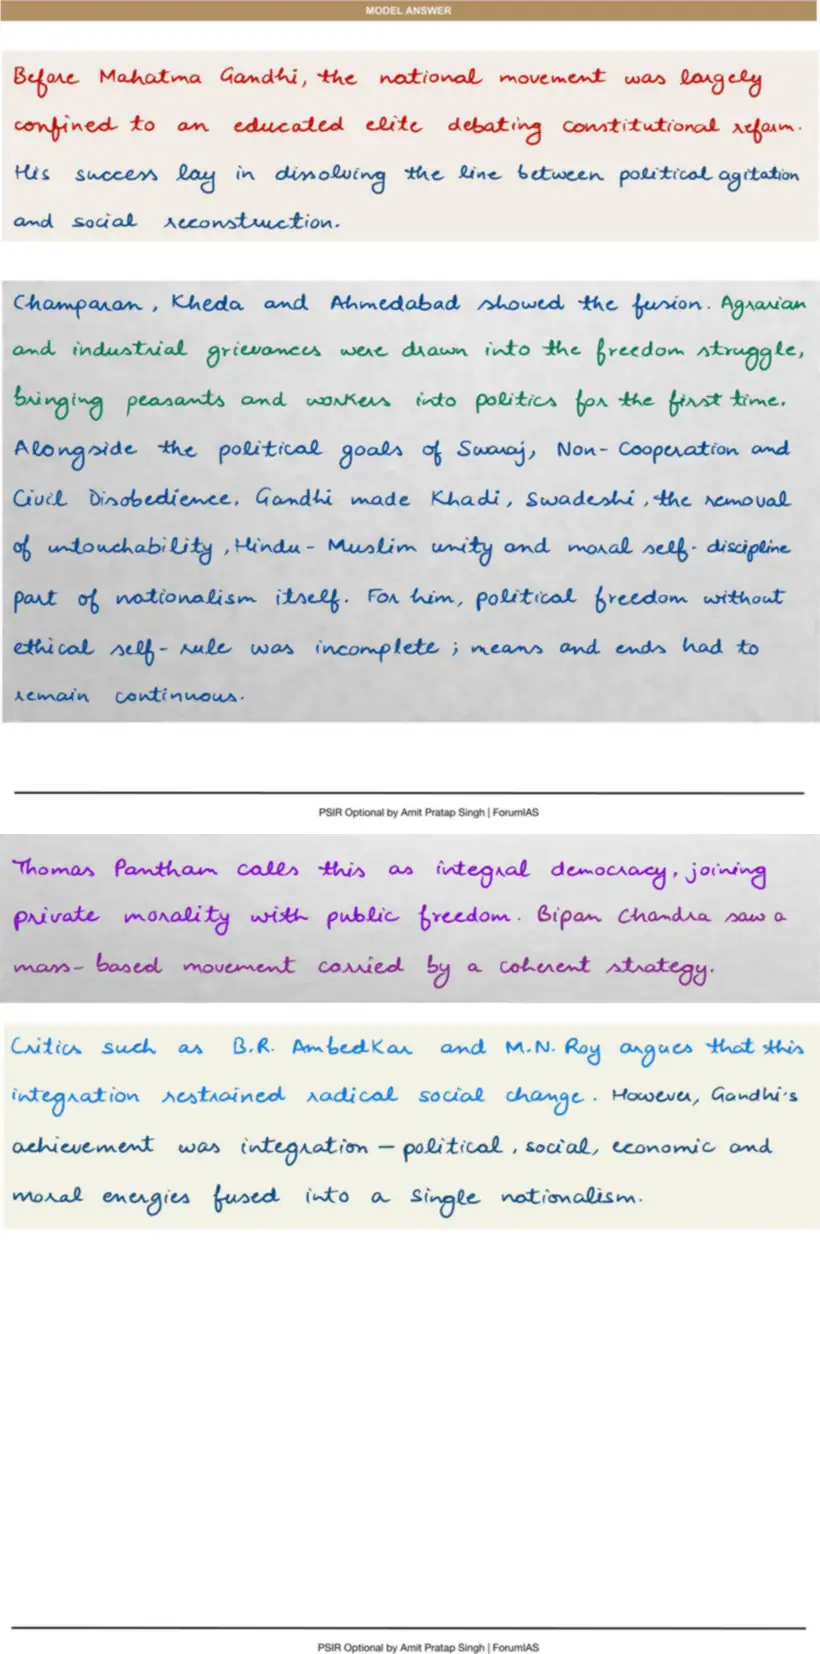 MODEL ANSWER
Before Mahatma Gandhi, the national movement was largely
confined to an educated elite debating constitutional reform.
His success lay in dissolving the line between political agitation
and social reconstruction.
Champaran, Kheda and Ahmedabad showed the fusion. Agrarian
and industrial grievances were drawn into the freedom struggle,
bringing peasants and workers into politics for the first time.
Alongside the political goals of Swaraj, Non-Cooperation and
Civil Disobedience, Gandhi made Khadi, Swadeshi, the removal
of untouchability, Hindu-Muslim unity and moral self-discipline
part of nationalism itself. For him, political freedom without
ethical self-rule was incomplete; means and ends had to
remain continuous.
PSIR Optional by Amit Pratap Singh | ForumIAS
Thomas Pantham calls this as integral democracy, joining
private morality with public freedom. Bipan Chandra saw a
mass-based movement carried by a coherent strategy.
Critics such as B.R. Ambedkar and M.N. Roy argues that this
integration restrained radical social change. However, Gandhi's
achievement was integration – political, social, economic and
moral energies fused into a single nationalism.
PSIR Optional by Amit Pratap Singh | ForumIAS